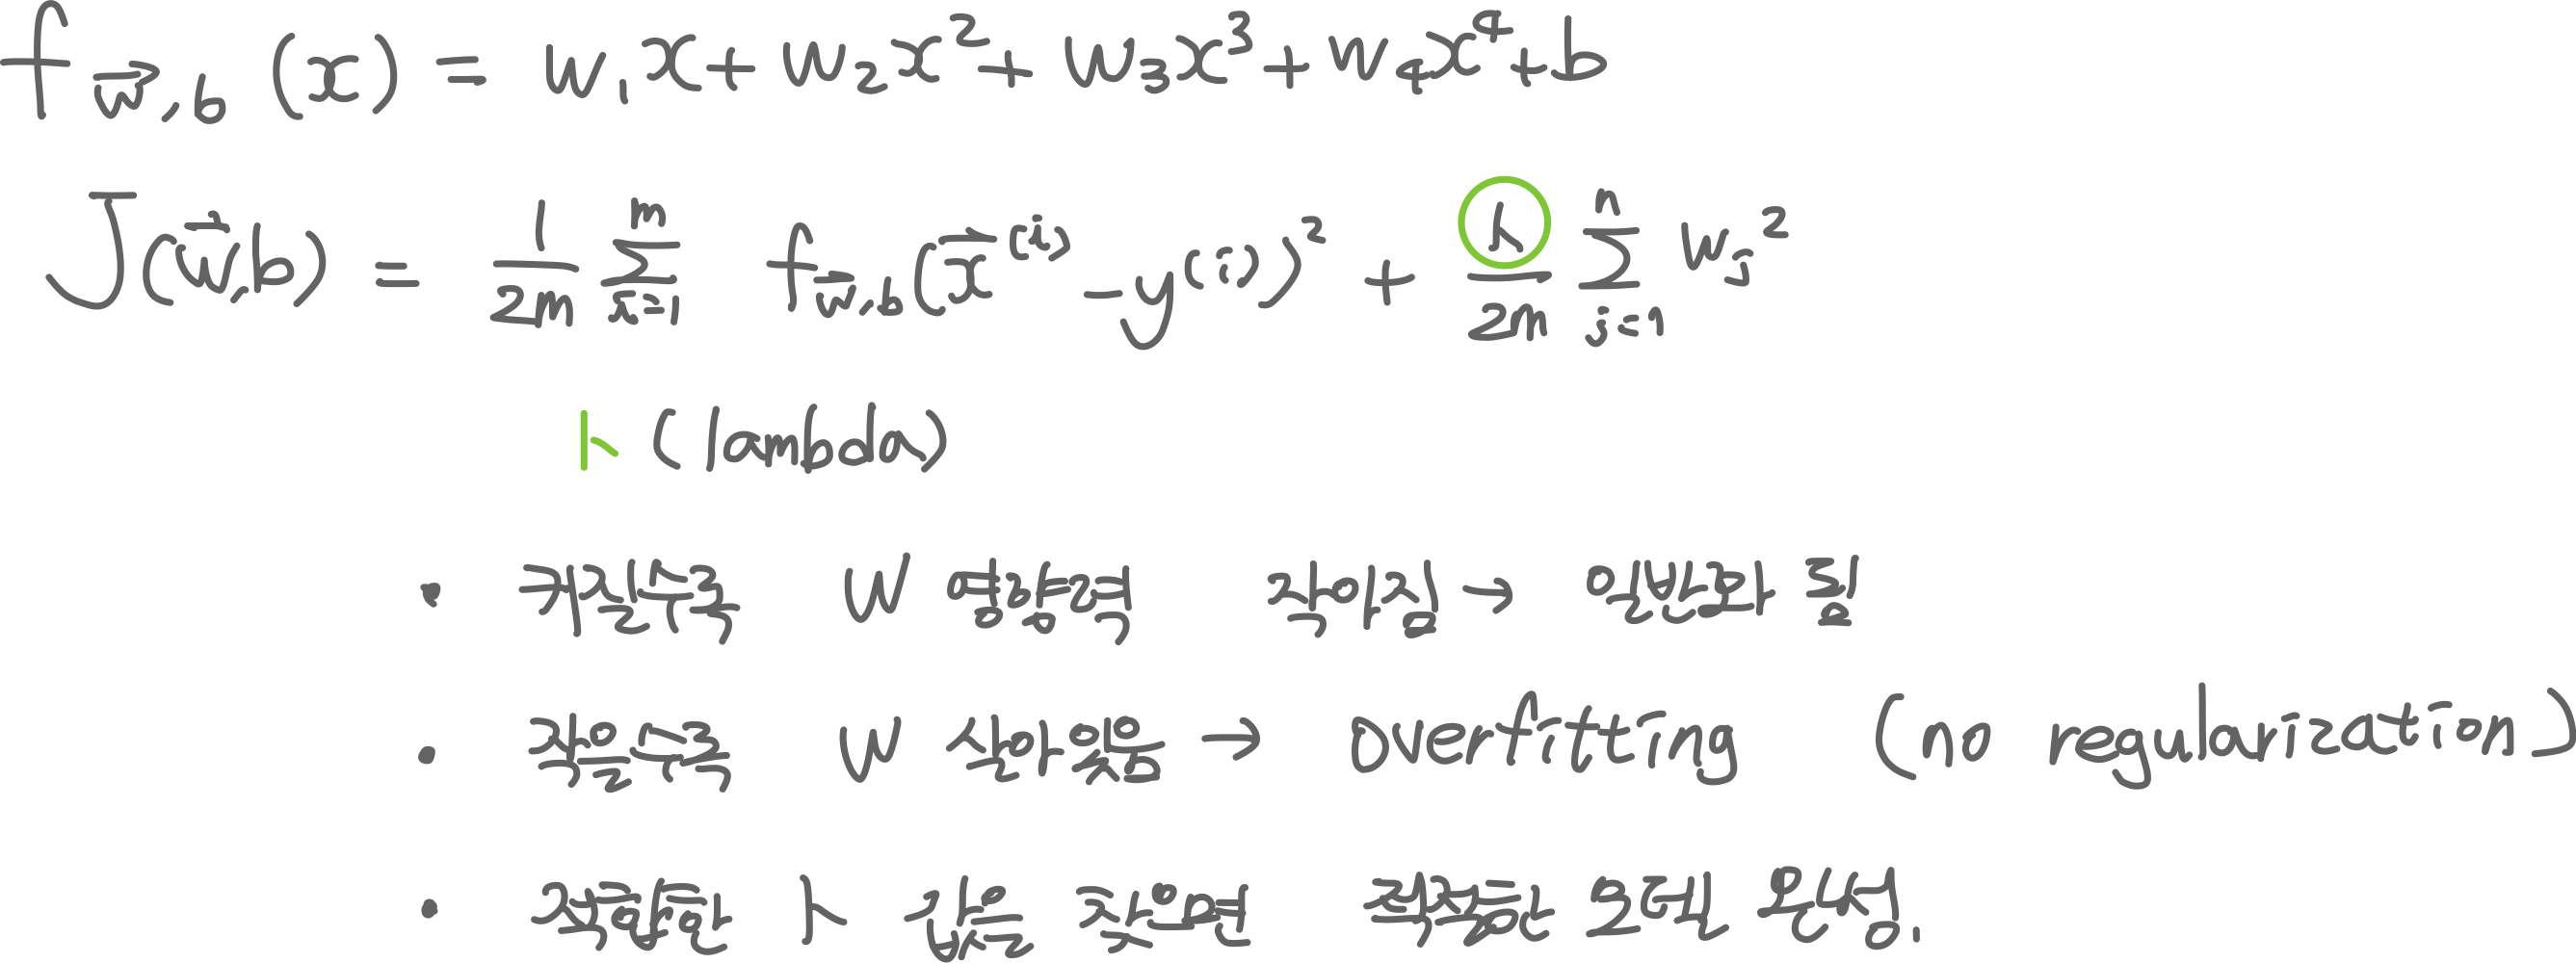 f_{\vec{w},b}(x) = w₁x + w₂x² + w₃x³ + w₄x⁴ + b
J(\vec{w},b) = \frac{1}{2m} \sum_{i=1}^{m} f_{\vec{w},b}(\vec{x}^{(i)} - y^{(i)})² + \frac{λ}{2m} \sum_{j=1}^{n} w_j²
λ (lambda)
· 커질수록 W 영향력 작아짐 → 일반화 됨
· 작을수록 W 살아있음 → overfitting (no regularization)
· 적합한 λ 값을 찾으면 적정한 모델 완성.